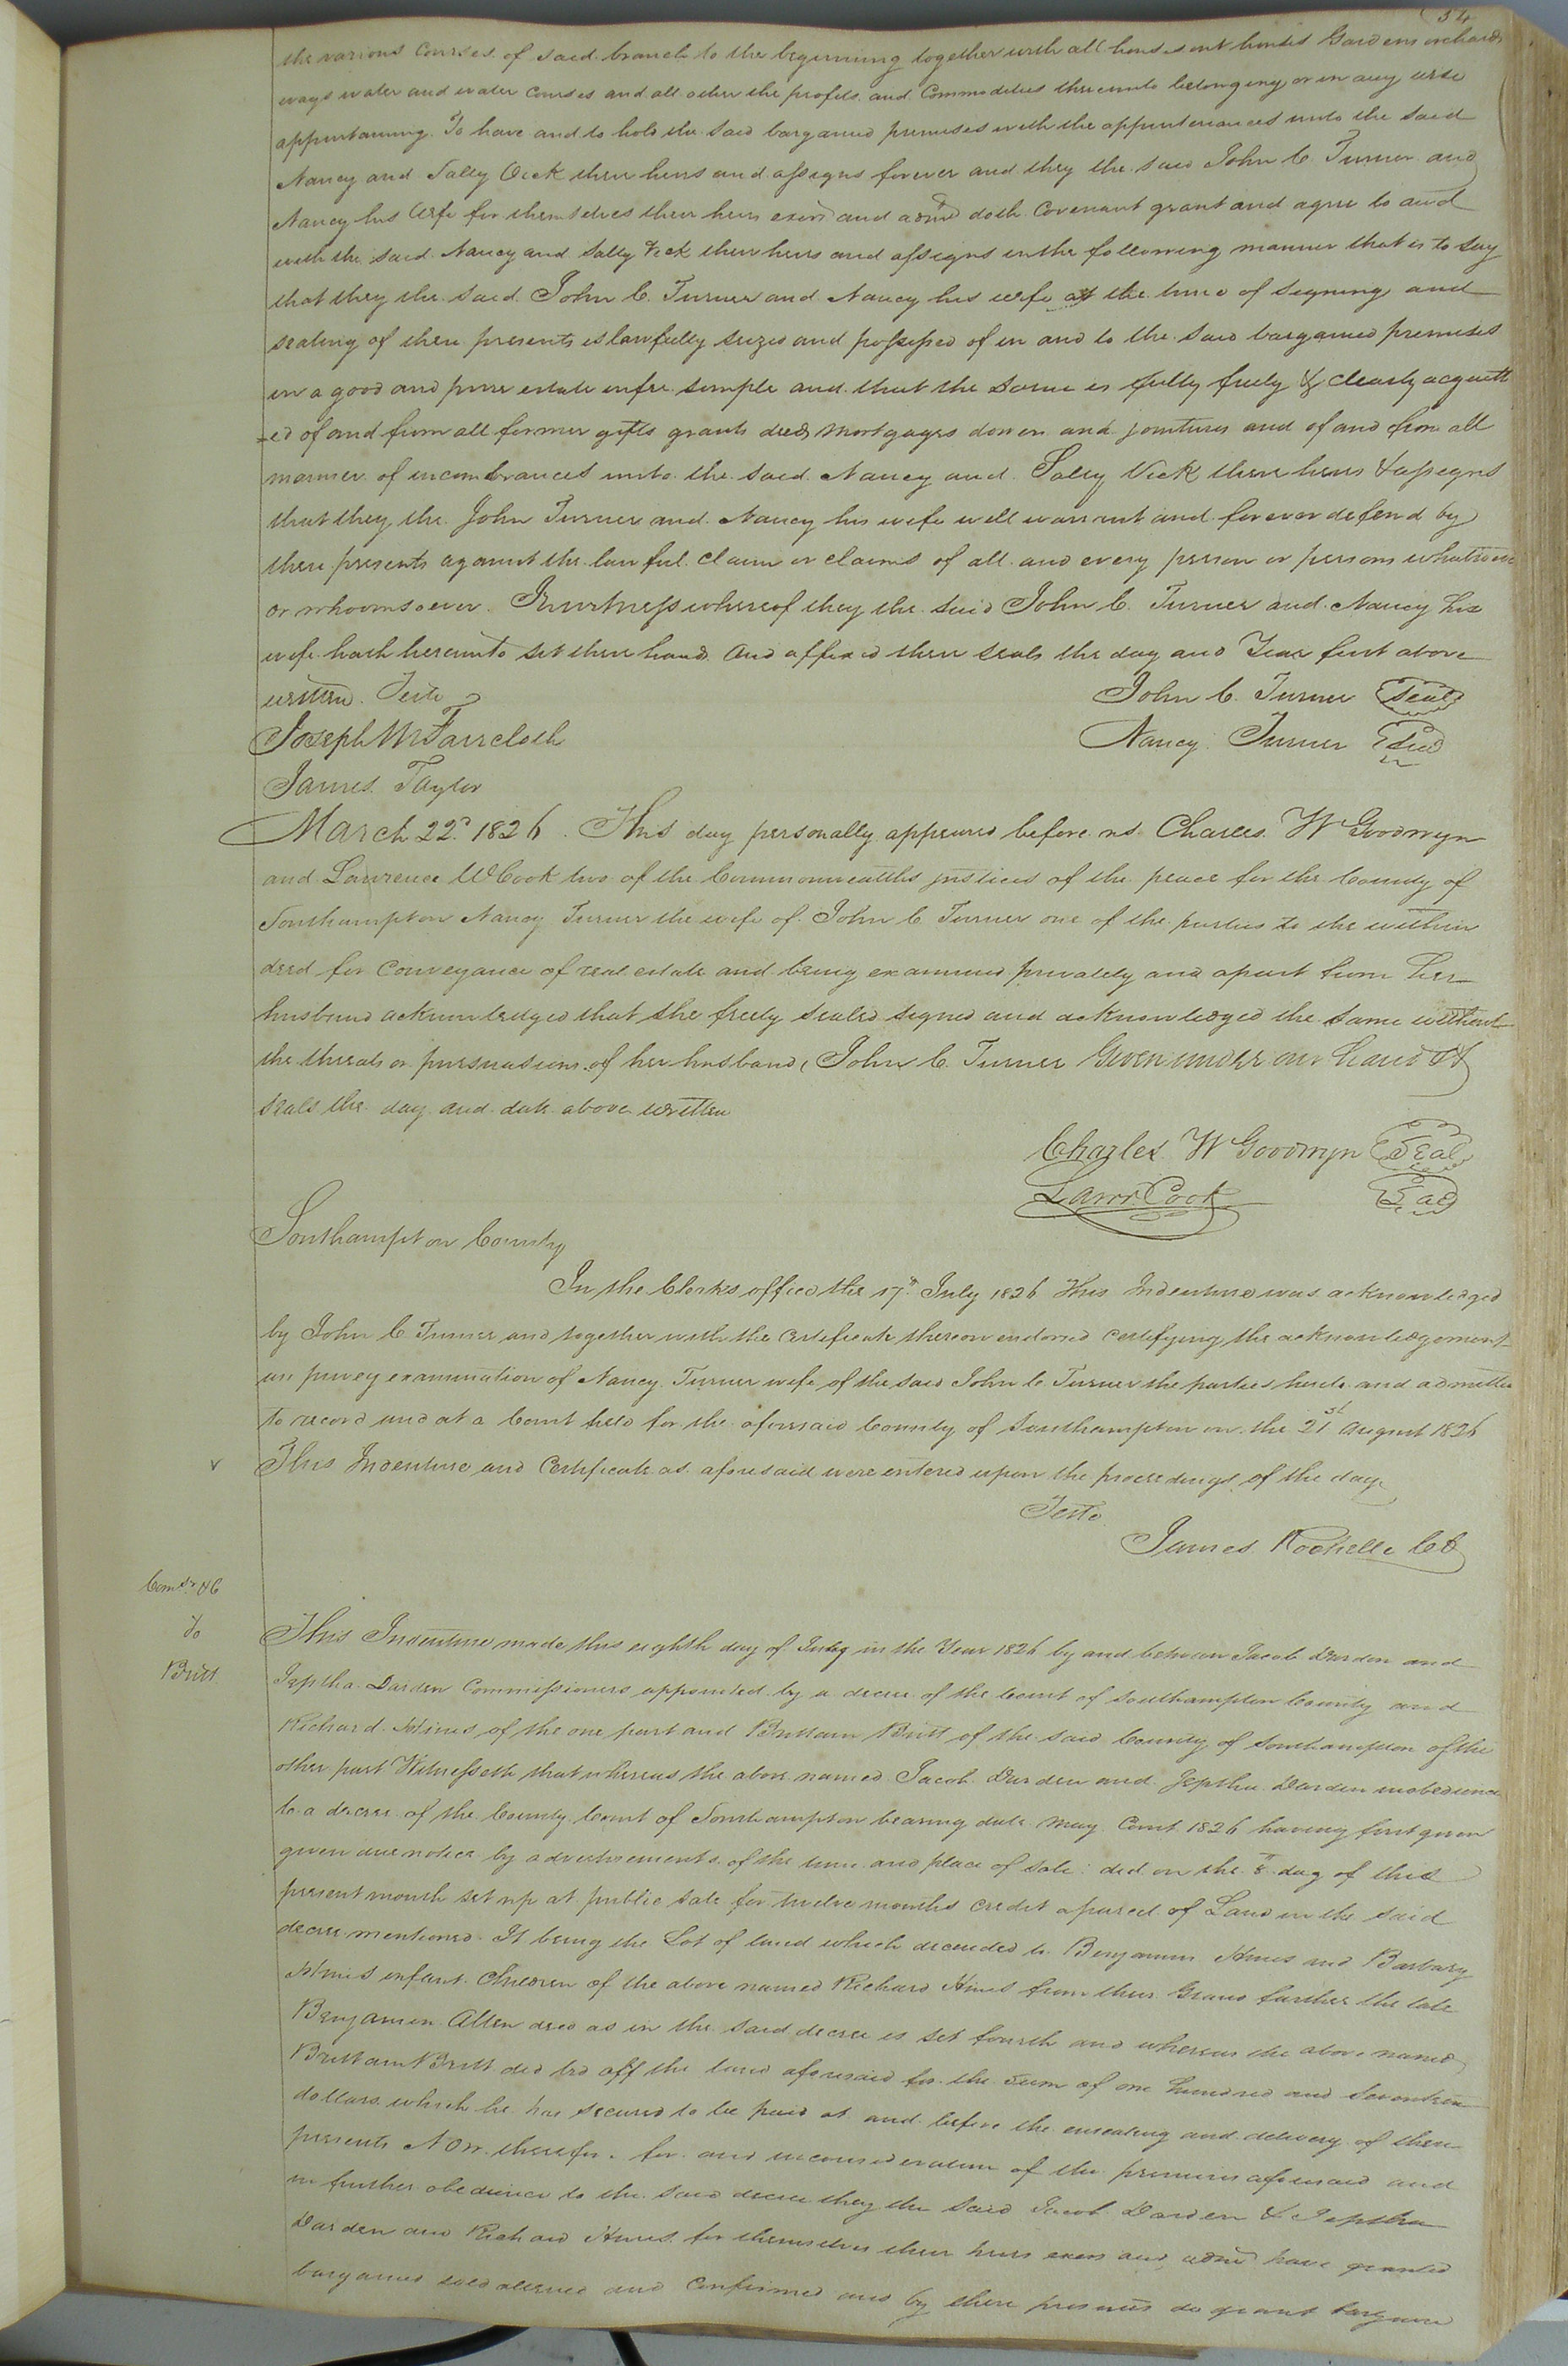 34
the various Courses of said branch to the beginning together with all houses out houses Gardens orchards
ways water and water courses and all other the profits and Commodities thereunto belonging or in any wise
appertaining. To have and to hold the said bargained premises with the appurtenances unto the said
Nancy and Sally Vick their heirs and assigns forever and they the said John C. Turner and
Nancy his wife for themselves their heirs exors and admrs doth Covenant grant and agree to and
with the said Nancy and Sally Vick their heirs and assigns in the following manner that is to say
that they the said John C. Turner and Nancy his wife at the time of signing and
sealing of these presents is lawfully seized and possessed of in and to the said bargained premises
in a good and pure estate in fee simple and that the same is fully freely & clearly acquitt
=ed of and from all former gifts grants deeds mortgages dower and jointures and of and from all
manner of incumbrances unto the said Nancy and Sally Vick there heirs & assigns
that they the John Turner and Nancy his wife will warrant and forever defend by
these presents against the lawful claim or claims of all and every person or persons whatsoever
or whoomsoever. In witness whereof they the said John C. Turner and Nancy his
wife hath hereunto set there hand and affixed there seals the day and Year first above
written. Teste John C. Turner Seal
Joseph W Faircloth Nancy Turner Seal
James Taylor
March 22d 1826. This day personally appeared before us Charles W Goodwyn
and Lawrence W Cook two of the Commonwealths justices of the peace for the County of
Southampton Nancy Turner the wife of John C Turner one of the parties to the within
deed for Conveyance of real estate and being examined privately and apart from her
husband acknowledged that she freely sealed signed and acknowledged the same without
the threats or pursuasions of her husband, John C. Turner Given under our hand &
seals the day and date above written
Charles W Goodwyn Seal
Lawr. Cook Seal
Southampton County
In the Clerks office the 17th July 1826 This Indenture was acknowledged
by John C Turner and together with the certificate thereon endorsed certifying the acknowledgement
on privey examination of Nancy Turner wife of the said John C Turner the parties hereto and admitted
to record and at a Court held for the aforesaid County of Southampton on the 21st August 1826
v This Indenture and Certificate as aforesaid were entered upon the proceedings of the day
Teste
James Rochelle CC
Comsr &C
To
Britt
This Indenture made this eighth day of July in the Year 1826 by and between Jacob Darden and
Jeptha Darden Commissioners appointed by a decree of the Court of Southampton County and
Richard Hines of the one part and Brittain Britt of the said County of Southampton of the
other part Witnesseth that whereas the above named Jacob Darden and Jeptha Darden in obedience
to a decree of the County Court of Southampton bearing date May Court 1826 having first given
given due notice by advertisements of the time and place of sale: did on the 8th day of this
present month set up at public sale for twelve months credit a parcel of Land in the said
decree mentioned. It being the Lot of land which decended to Benjamin Hines and Barbary
Hines infant Children of the above named Richard Hines from their Grand farther the late
Benjamin Allen decd as in the said decree is set fourth and whereas the above named
Brittain Britt did bid off the land aforesaid for the sum of one hundred and Seventeen
dollars which he has secured to be paid at and before the ensealing and delivery of these
presents Now therefore for and in consideration of the premises aforesaid and
in further obedience to the said decree they the said Jacob Darden & Jeptha
Darden and Richard Hines for themselves their heirs exors and admrs have granted
bargained sold aliened and Confirmed and by these presents do grant bargain